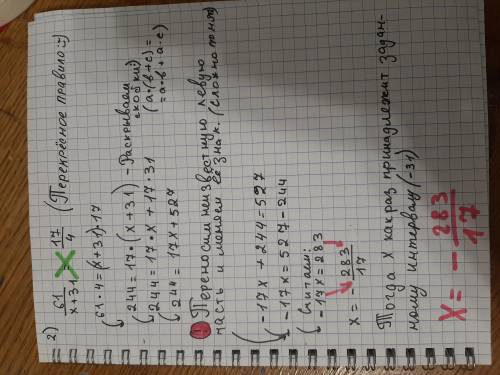 2) 61/(x+31) = 17/4 (Перекрёсное правило :-)
61·4=(x+31)·17
244=17·(x+31) - Раскрываем скобки)
244=17·x+17·31 (a·(b+c)=
=a·b+a·c)
244=17x+527
! Переносим неизвестную левую
часть и меняем её знак.
-17x+244=527
-17x=527-244
Считаем:
-17x=283
x= -283/17
Тогда x как раз принадлежит задан-
ному интервалу (-31)
x= -283/17